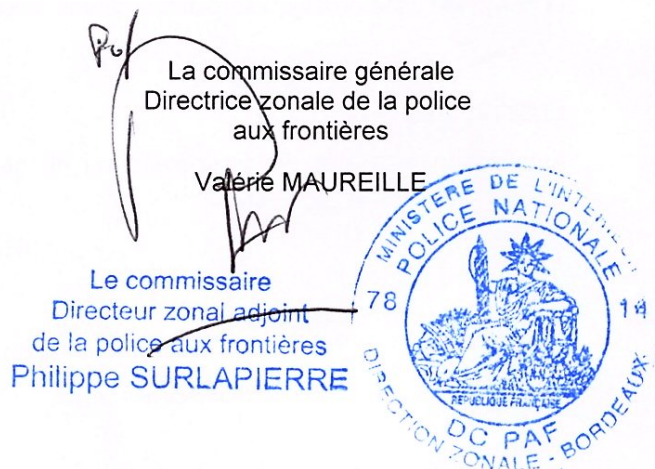 P/o
La commissaire générale
Directrice zonale de la police
aux frontières
Valérie MAUREILLE
Le commissaire
Directeur zonal adjoint
de la police aux frontières
Philippe SURLAPIERRE
MINISTERE DE L'INTERIEUR
POLICE NATIONALE
78
14
REPUBLIQUE FRANÇAISE
DC PAF
DIRECTION ZONALE - BORDEAUX